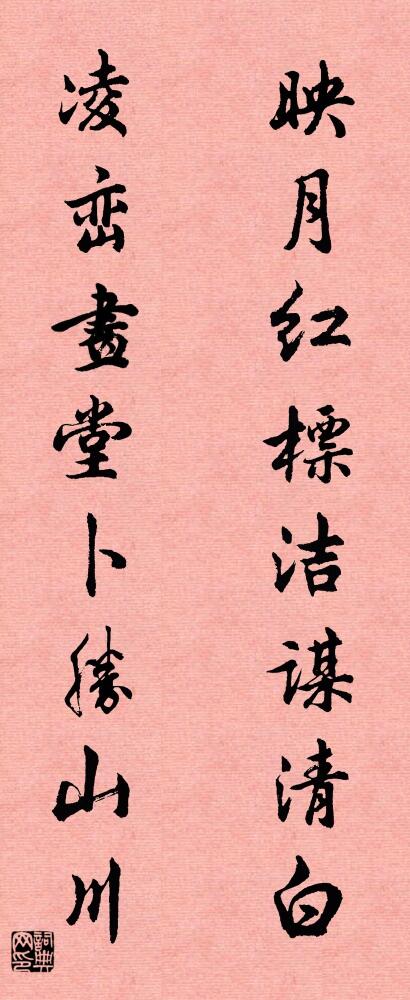 映月红標洁謀清白
凌峦畫堂卜勝山川
詞典网印